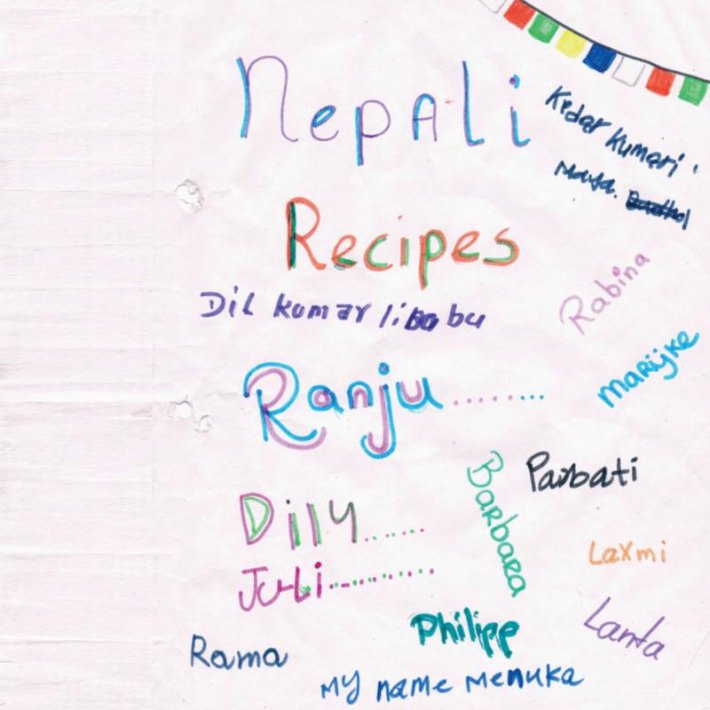 Nepali
Kedar Kumari
Maya.
Recipes
Rabina
Dil kumar li.babu
Marijke
Ranju........
Parbati
Barbara
Dily......
Laxmi
Juli...........
Lanta
Philipp
Rama
My name Menuka